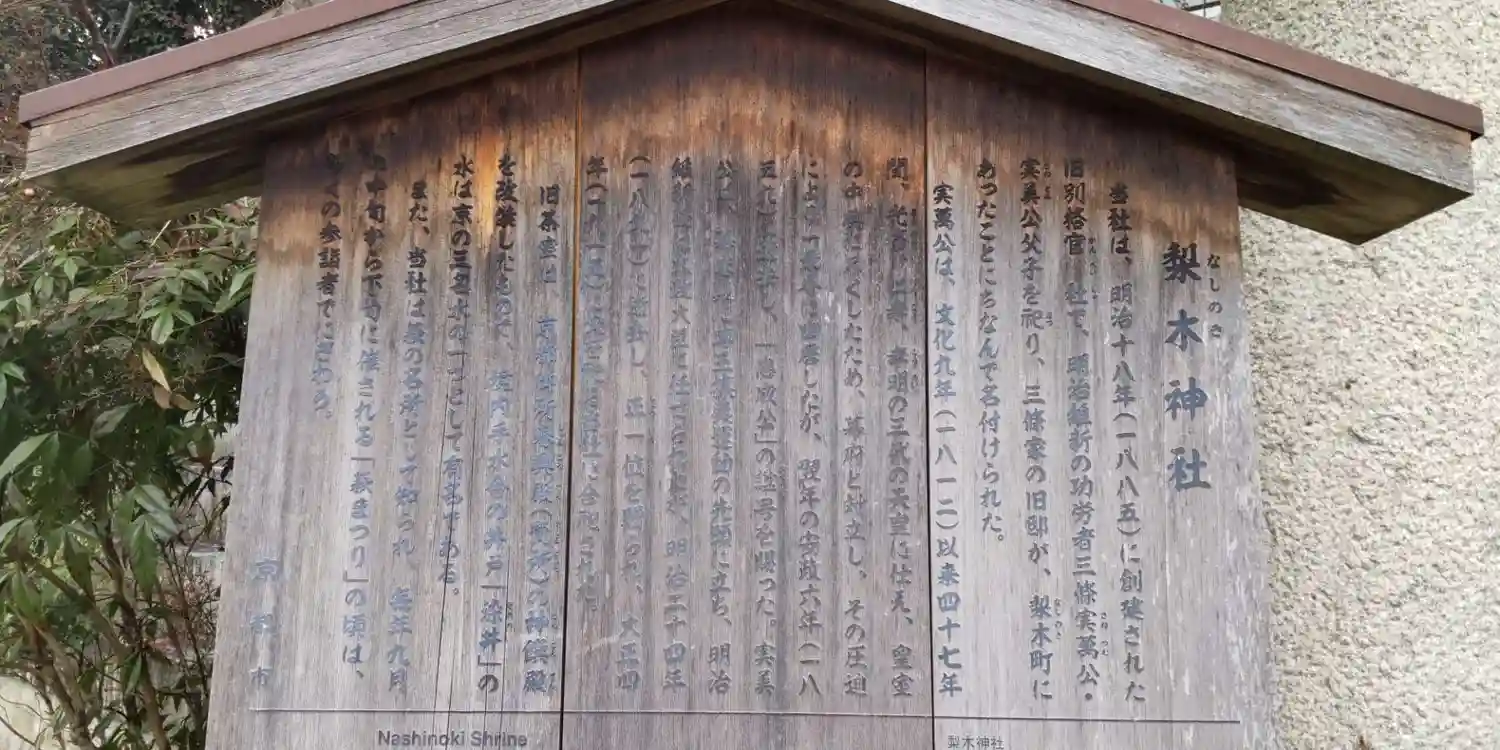 梨木神社
なしのき
当社は、明治十八年(一八八五)に創建された
旧別格官 社で、明治維新の功労者三條実萬公・
実美公父子を祀り、三條家の旧邸が、梨木町に
あったことにちなんで名付けられた。
実萬公は、文化九年(一八一二)以来四十七年
間、光 仁孝、孝明の三代の天皇に仕え、皇室
の中 に くしたため、幕府と対立し、その圧迫
により一 に 居したが、翌年の安政六年(一八
五九)に し、「忠成公」の諡号を賜った。実美
公は、 三條 運動の先頭に立ち、明治
維新 は 大臣 、明治二十四年
(一八九一)に し、正一位を贈られ、大正四
年(一九一五) 当社に合祀された。
旧茶室は、京都御所 (  所)の神饌殿
を改装したもので、境内手水舎の井戸「染井」の
水は京の三名水の一つとして有名である。
また、当社は萩の名所として知られ、毎年九月
中旬から下旬に催される「萩まつり」の頃は、
多くの参詣者でにぎわう。
京都市
Nashinoki Shrine
梨木神社